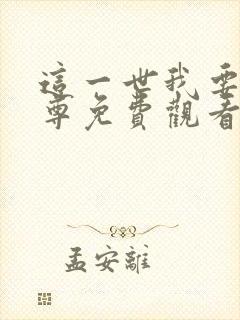 這一世我要
尊免費觀看
孟安離